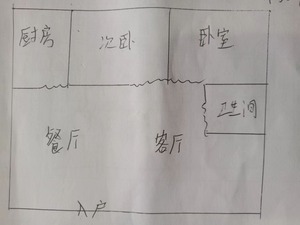 厨房
次卧
卧室
卫生间
餐厅
客厅
入户